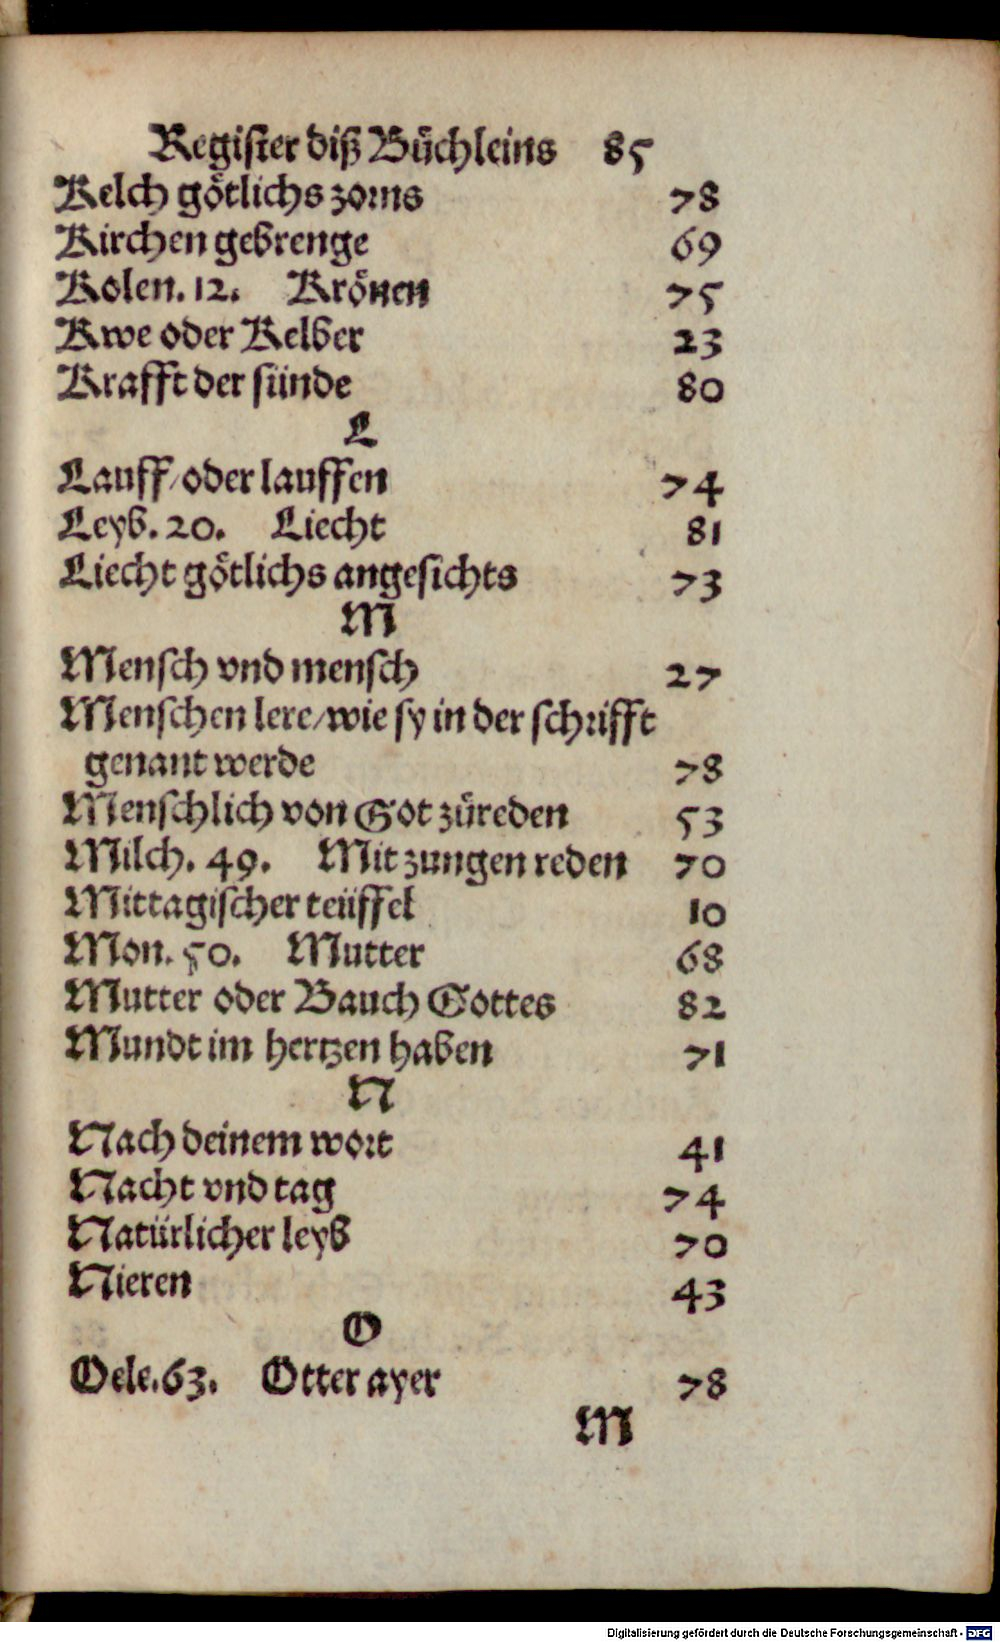 Register diß Büchleins 85
Kelch götlichs zorns 78
Kirchen gebrenge 69
Kolen. 12. Krönen 75
Kwe oder Kelber 23
Krafft der sünde 80
L
Lauff/oder lauffen 74
Leyb. 20. Liecht 81
Liecht götlichs angesichts 73
M
Mensch vnd mensch 27
Menschen lere/wie sy in der schrifft
genant werde 78
Menschlich von Got zůreden 53
Milch. 49. Mit zungen reden 70
Mittagischer teüffel 10
Mon. 50. Mutter 68
Mutter oder Bauch Gottes 82
Mundt im hertzen haben 71
N
Nach deinem wort 41
Nacht vnd tag 74
Natürlicher leyb 70
Nieren 43
O
Oele. 63. Otter ayer 78
M
Digitalisierung gefördert durch die Deutsche Forschungsgemeinschaft - DFG